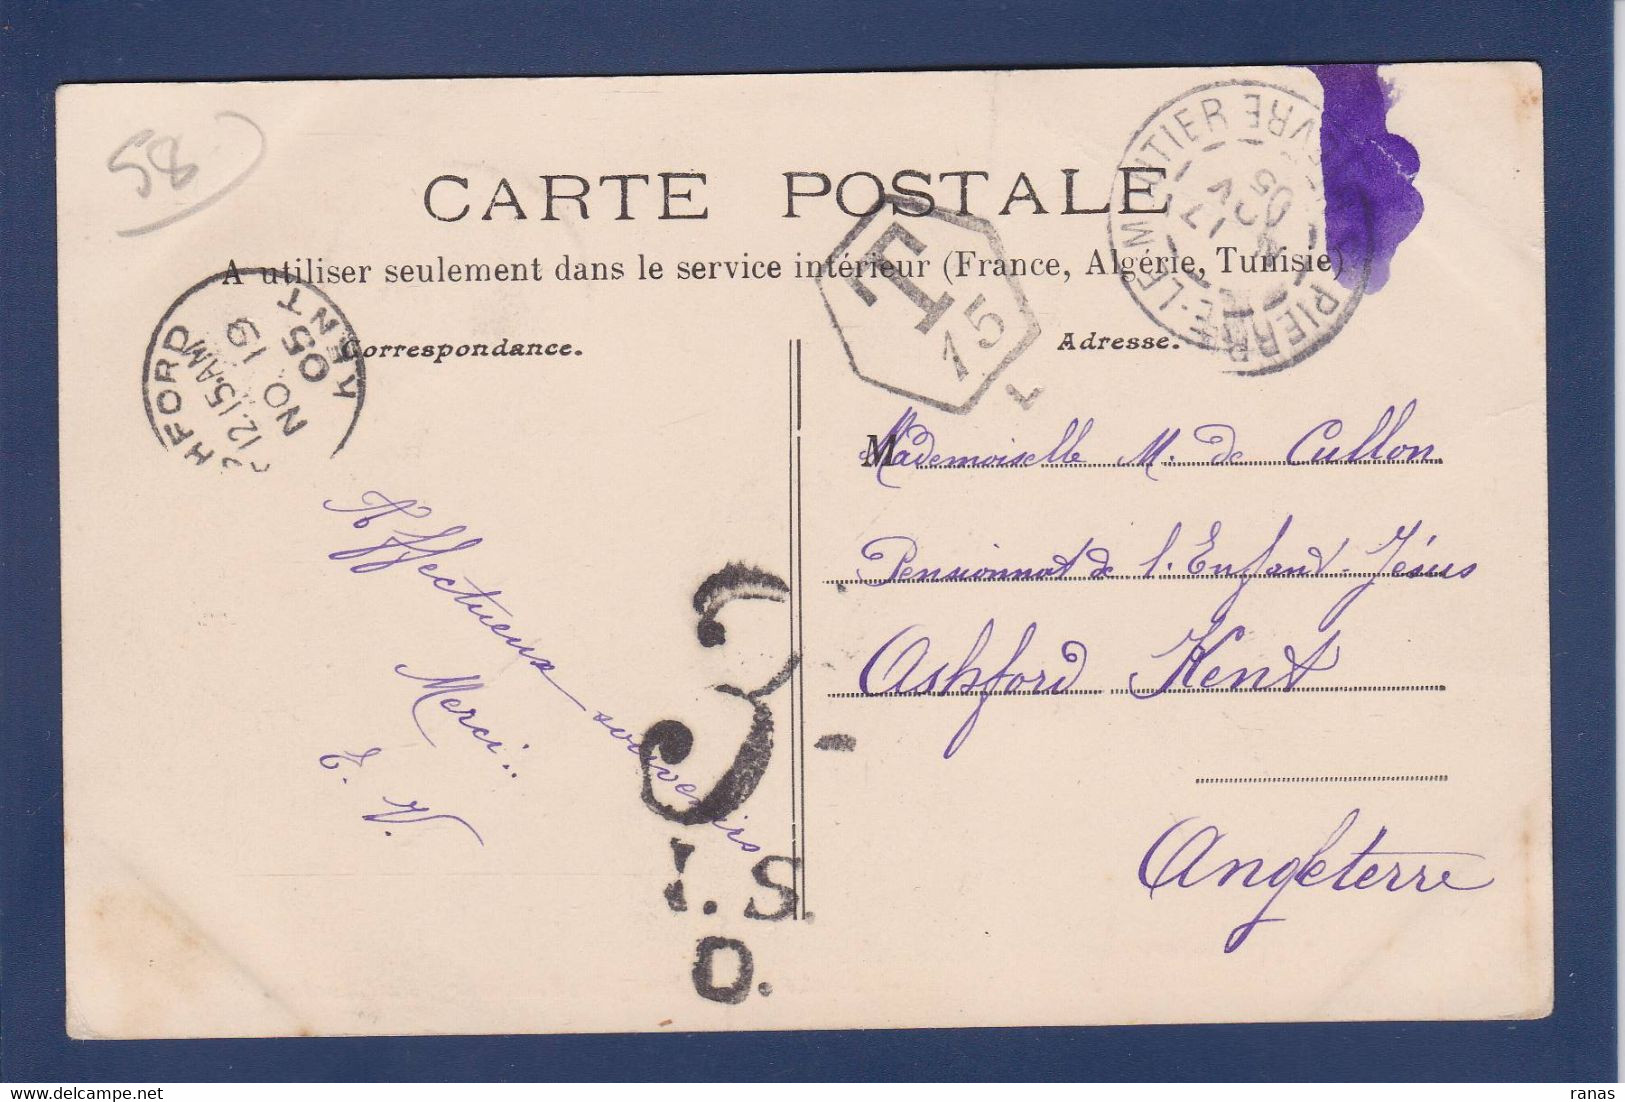 58
CARTE POSTALE
A utiliser seulement dans le service intérieur (France, Algérie, Tunisie)
PIERRE-LE-MOUTIER
17 05
T
15
L
HFORD
12.15AM
NO 19
05
KENT
Correspondance.
Adresse.
Mademoiselle M. de Cullon
Pensionnat de l'Enfant-Jésus
Ashford Kent
Angleterre
Affectueux souvenirs
Merci..
E. V.
3
I.S.
O.
ranas